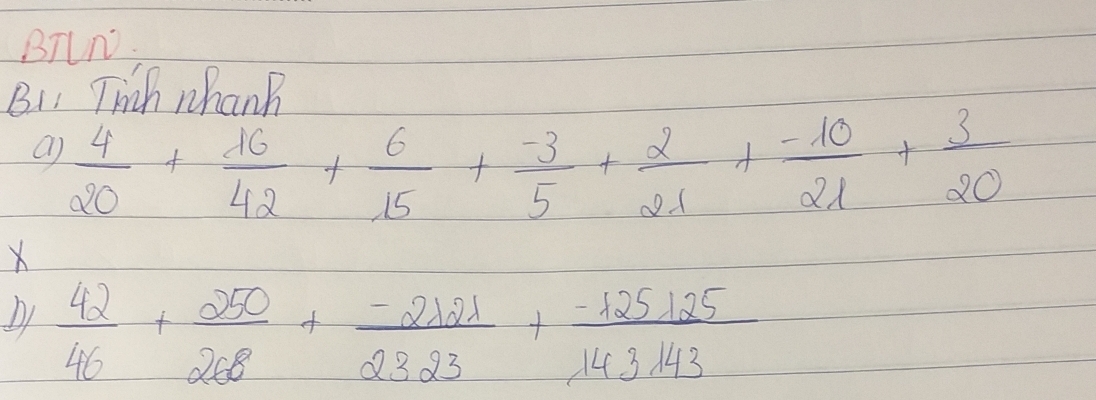 BTVN.
B1: Tính nhanh
a) 4/20 + 16/42 + 6/15 + -3/5 + 2/21 + -10/21 + 3/20
b) 42/46 + 250/268 + -2121/2323 + -125125/143143